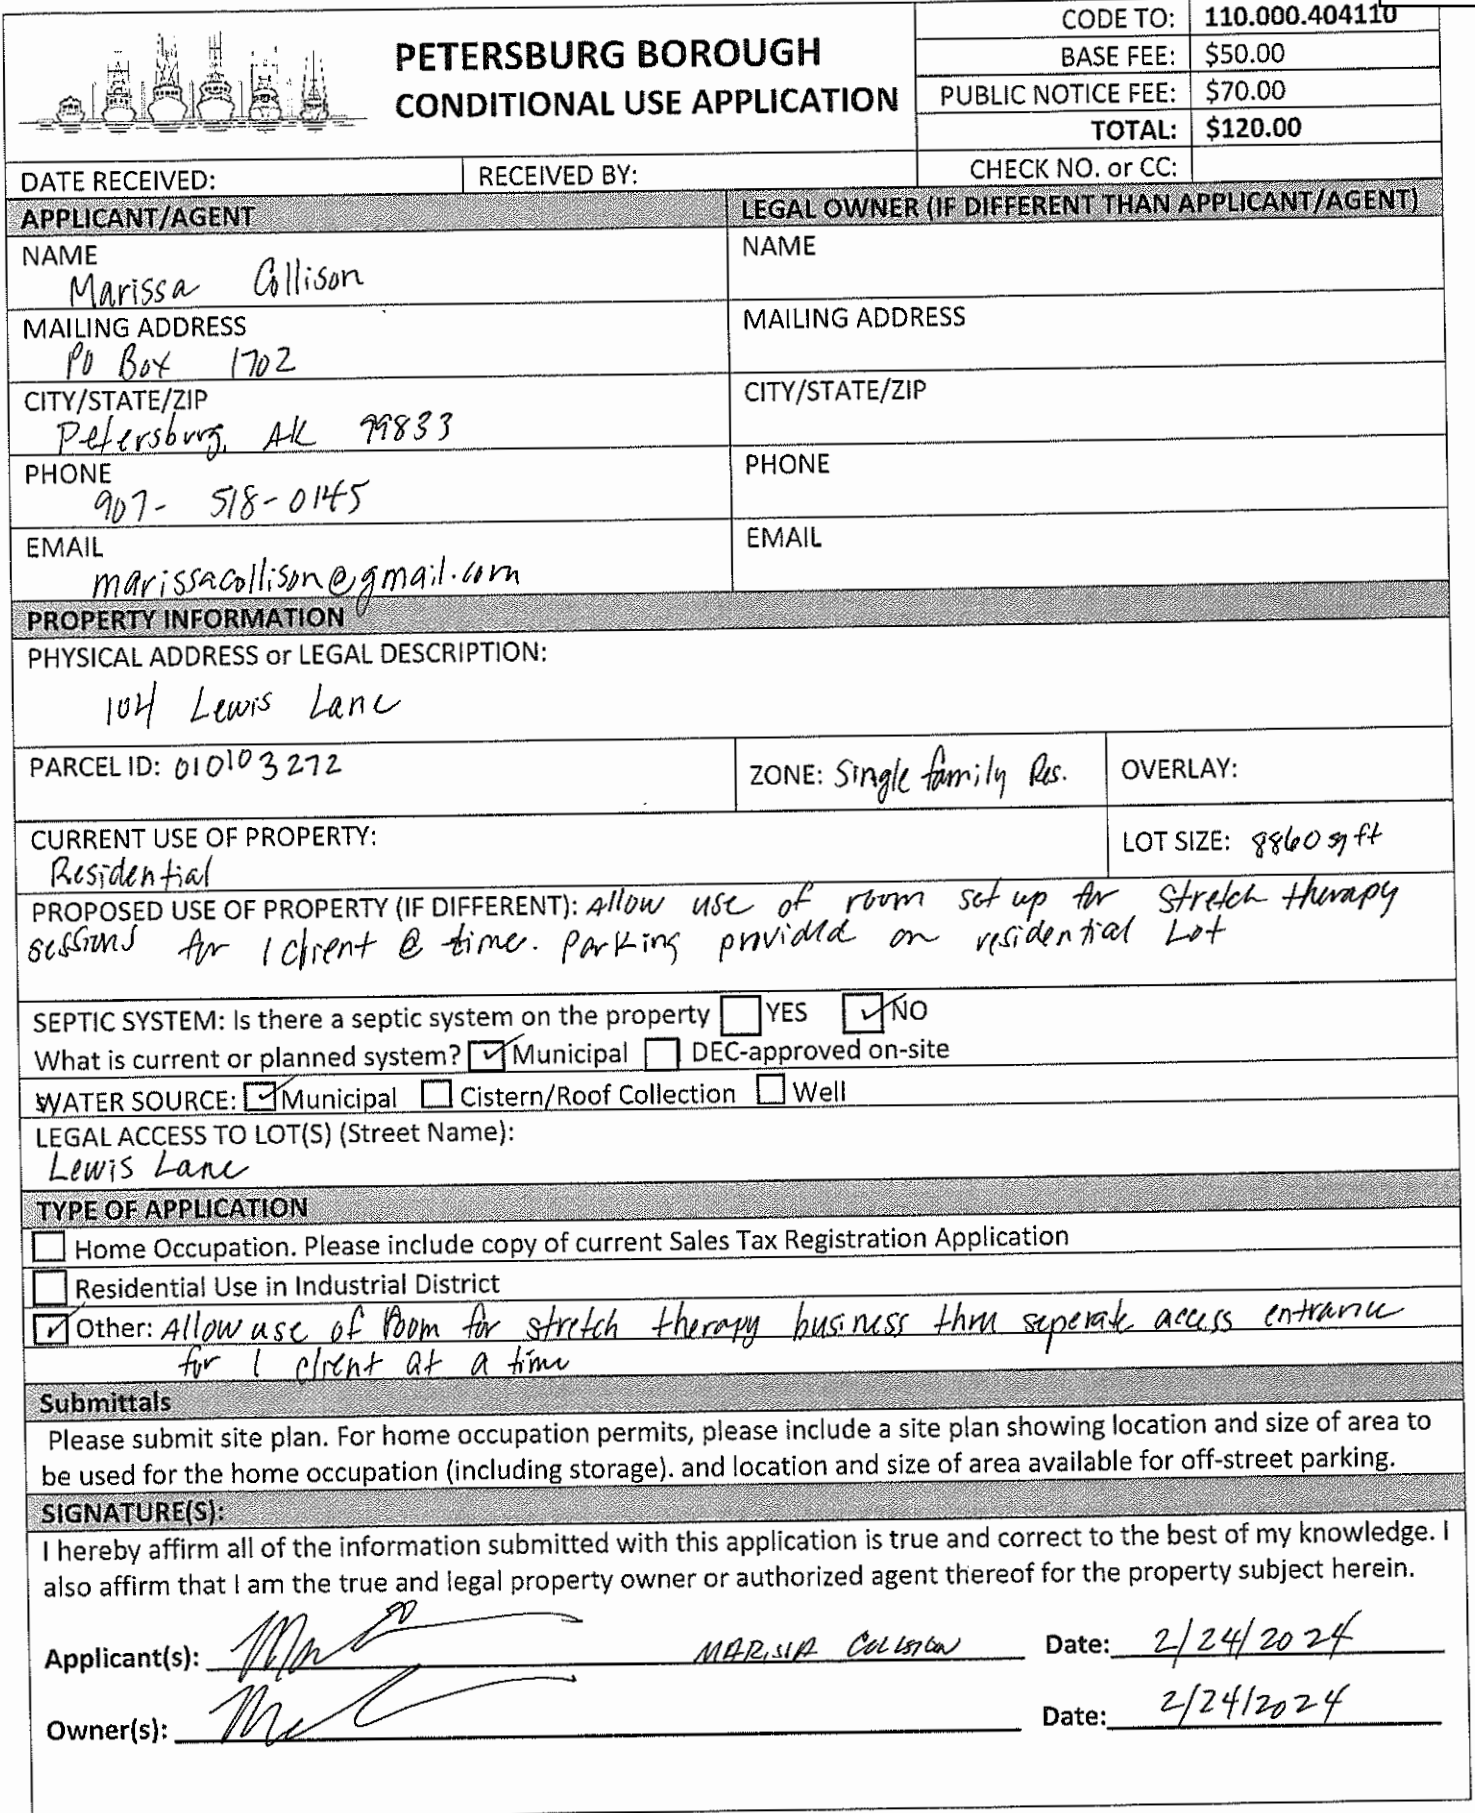 PETERSBURG BOROUGH
CONDITIONAL USE APPLICATION
CODE TO: 110.000.404110
BASE FEE: $50.00
PUBLIC NOTICE FEE: $70.00
TOTAL: $120.00
DATE RECEIVED: RECEIVED BY: CHECK NO. or CC:
APPLICANT/AGENT LEGAL OWNER (IF DIFFERENT THAN APPLICANT/AGENT)
NAME NAME
Marissa Collison
MAILING ADDRESS MAILING ADDRESS
PO Box 1702
CITY/STATE/ZIP CITY/STATE/ZIP
Petersburg, AK 99833
PHONE PHONE
907- 518-0145
EMAIL EMAIL
marissacollison@gmail.com
PROPERTY INFORMATION
PHYSICAL ADDRESS or LEGAL DESCRIPTION:
104 Lewis Lane
PARCEL ID: 010103272 ZONE: Single family Res. OVERLAY:
CURRENT USE OF PROPERTY: LOT SIZE: 8860 sq ft
Residential
PROPOSED USE OF PROPERTY (IF DIFFERENT): Allow use of room set up for stretch therapy
sessions for 1 client @ time. Parking provided on residential Lot
SEPTIC SYSTEM: Is there a septic system on the property YES NO
What is current or planned system? Municipal DEC-approved on-site
WATER SOURCE: Municipal Cistern/Roof Collection Well
LEGAL ACCESS TO LOT(S) (Street Name):
Lewis Lane
TYPE OF APPLICATION
Home Occupation. Please include copy of current Sales Tax Registration Application
Residential Use in Industrial District
Other: Allow use of Room for stretch therapy business thru seperate access entrance
for 1 client at a time
Submittals
Please submit site plan. For home occupation permits, please include a site plan showing location and size of area to
be used for the home occupation (including storage). and location and size of area available for off-street parking.
SIGNATURE(S):
I hereby affirm all of the information submitted with this application is true and correct to the best of my knowledge. I
also affirm that I am the true and legal property owner or authorized agent thereof for the property subject herein.
Applicant(s): MARISSA COLLISON Date: 2/24/2024
Owner(s): Date: 2/24/2024